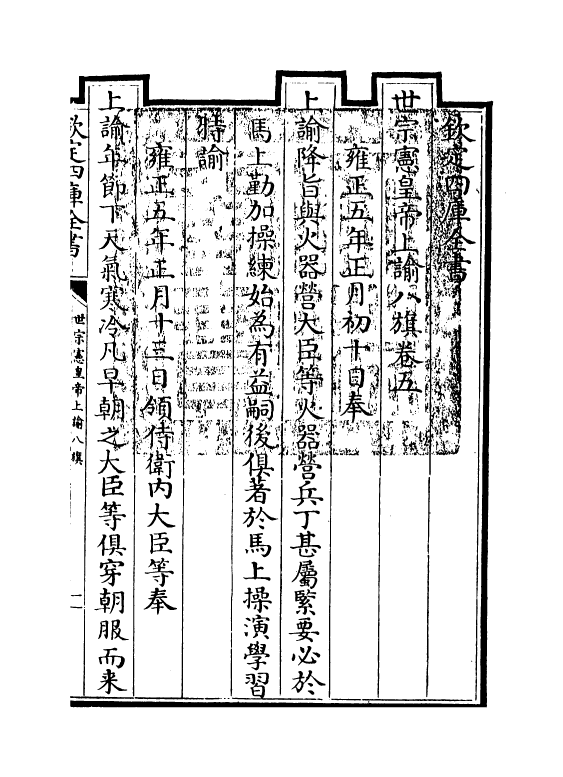 欽定四庫全書
世宗憲皇帝上諭八旗卷五
雍正五年正月初十日奉
上諭降旨與火器營大臣等火器營兵丁甚屬緊要必於
馬上勤加操練始為有益嗣後俱著於馬上操演學習
特諭
雍正五年正月十三日領侍衛內大臣等奉
上諭年節下天氣寒冷凡早朝之大臣等俱穿朝服而来
欽定四庫全書
世宗憲皇帝上諭八旗
一